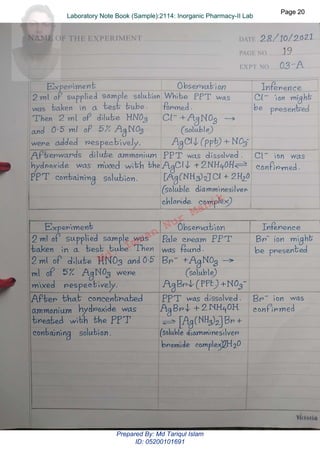 Laboratory Note Book (Sample):2114: Inorganic Pharmacy-II Lab
Page 20
NAME OF THE EXPERIMENT
DATE 28/10/2021
PAGE NO. 19
EXPT NO. 03-A
Experiment Observation Inference
2 ml of supplied sample solution White PPT was Cl⁻ ion might
was taken in a test tube. formed. be presented
Then 2 ml of dilute HNO3 Cl⁻ + AgNO3 →
and 0.5 ml of 5% AgNO3 (soluble)
were added respectively. AgCl↓(ppt) + NO3⁻
Afterwards dilute ammonium PPT was dissolved. Cl⁻ ion was
hydroxide was mixed with the AgCl↓ + 2NH4OH⇌ confirmed.
PPT containing solution. [Ag(NH3)2]Cl + 2H2O
(soluble diamminesilver
chloride complex)
Experiment Observation Inference
2 ml of supplied sample was Pale cream PPT Br⁻ ion might
taken in a test tube. Then was found. be presented
2 ml of dilute HNO3 and 0.5 Br⁻ + AgNO3 →
ml of 5% AgNO3 were (soluble)
mixed respectively. AgBr↓(PPt) + NO3⁻
After that concentrated PPT was dissolved. Br⁻ ion was
ammonium hydroxide was AgBr↓ + 2NH4OH confirmed
treated with the PPT ⇌ [Ag(NH3)2]Br +
containing solution. (soluble diamminesilver
bromide complex) 2H2O
Victoria
Prepared By: Md Tariqul Islam
ID: 05200101691